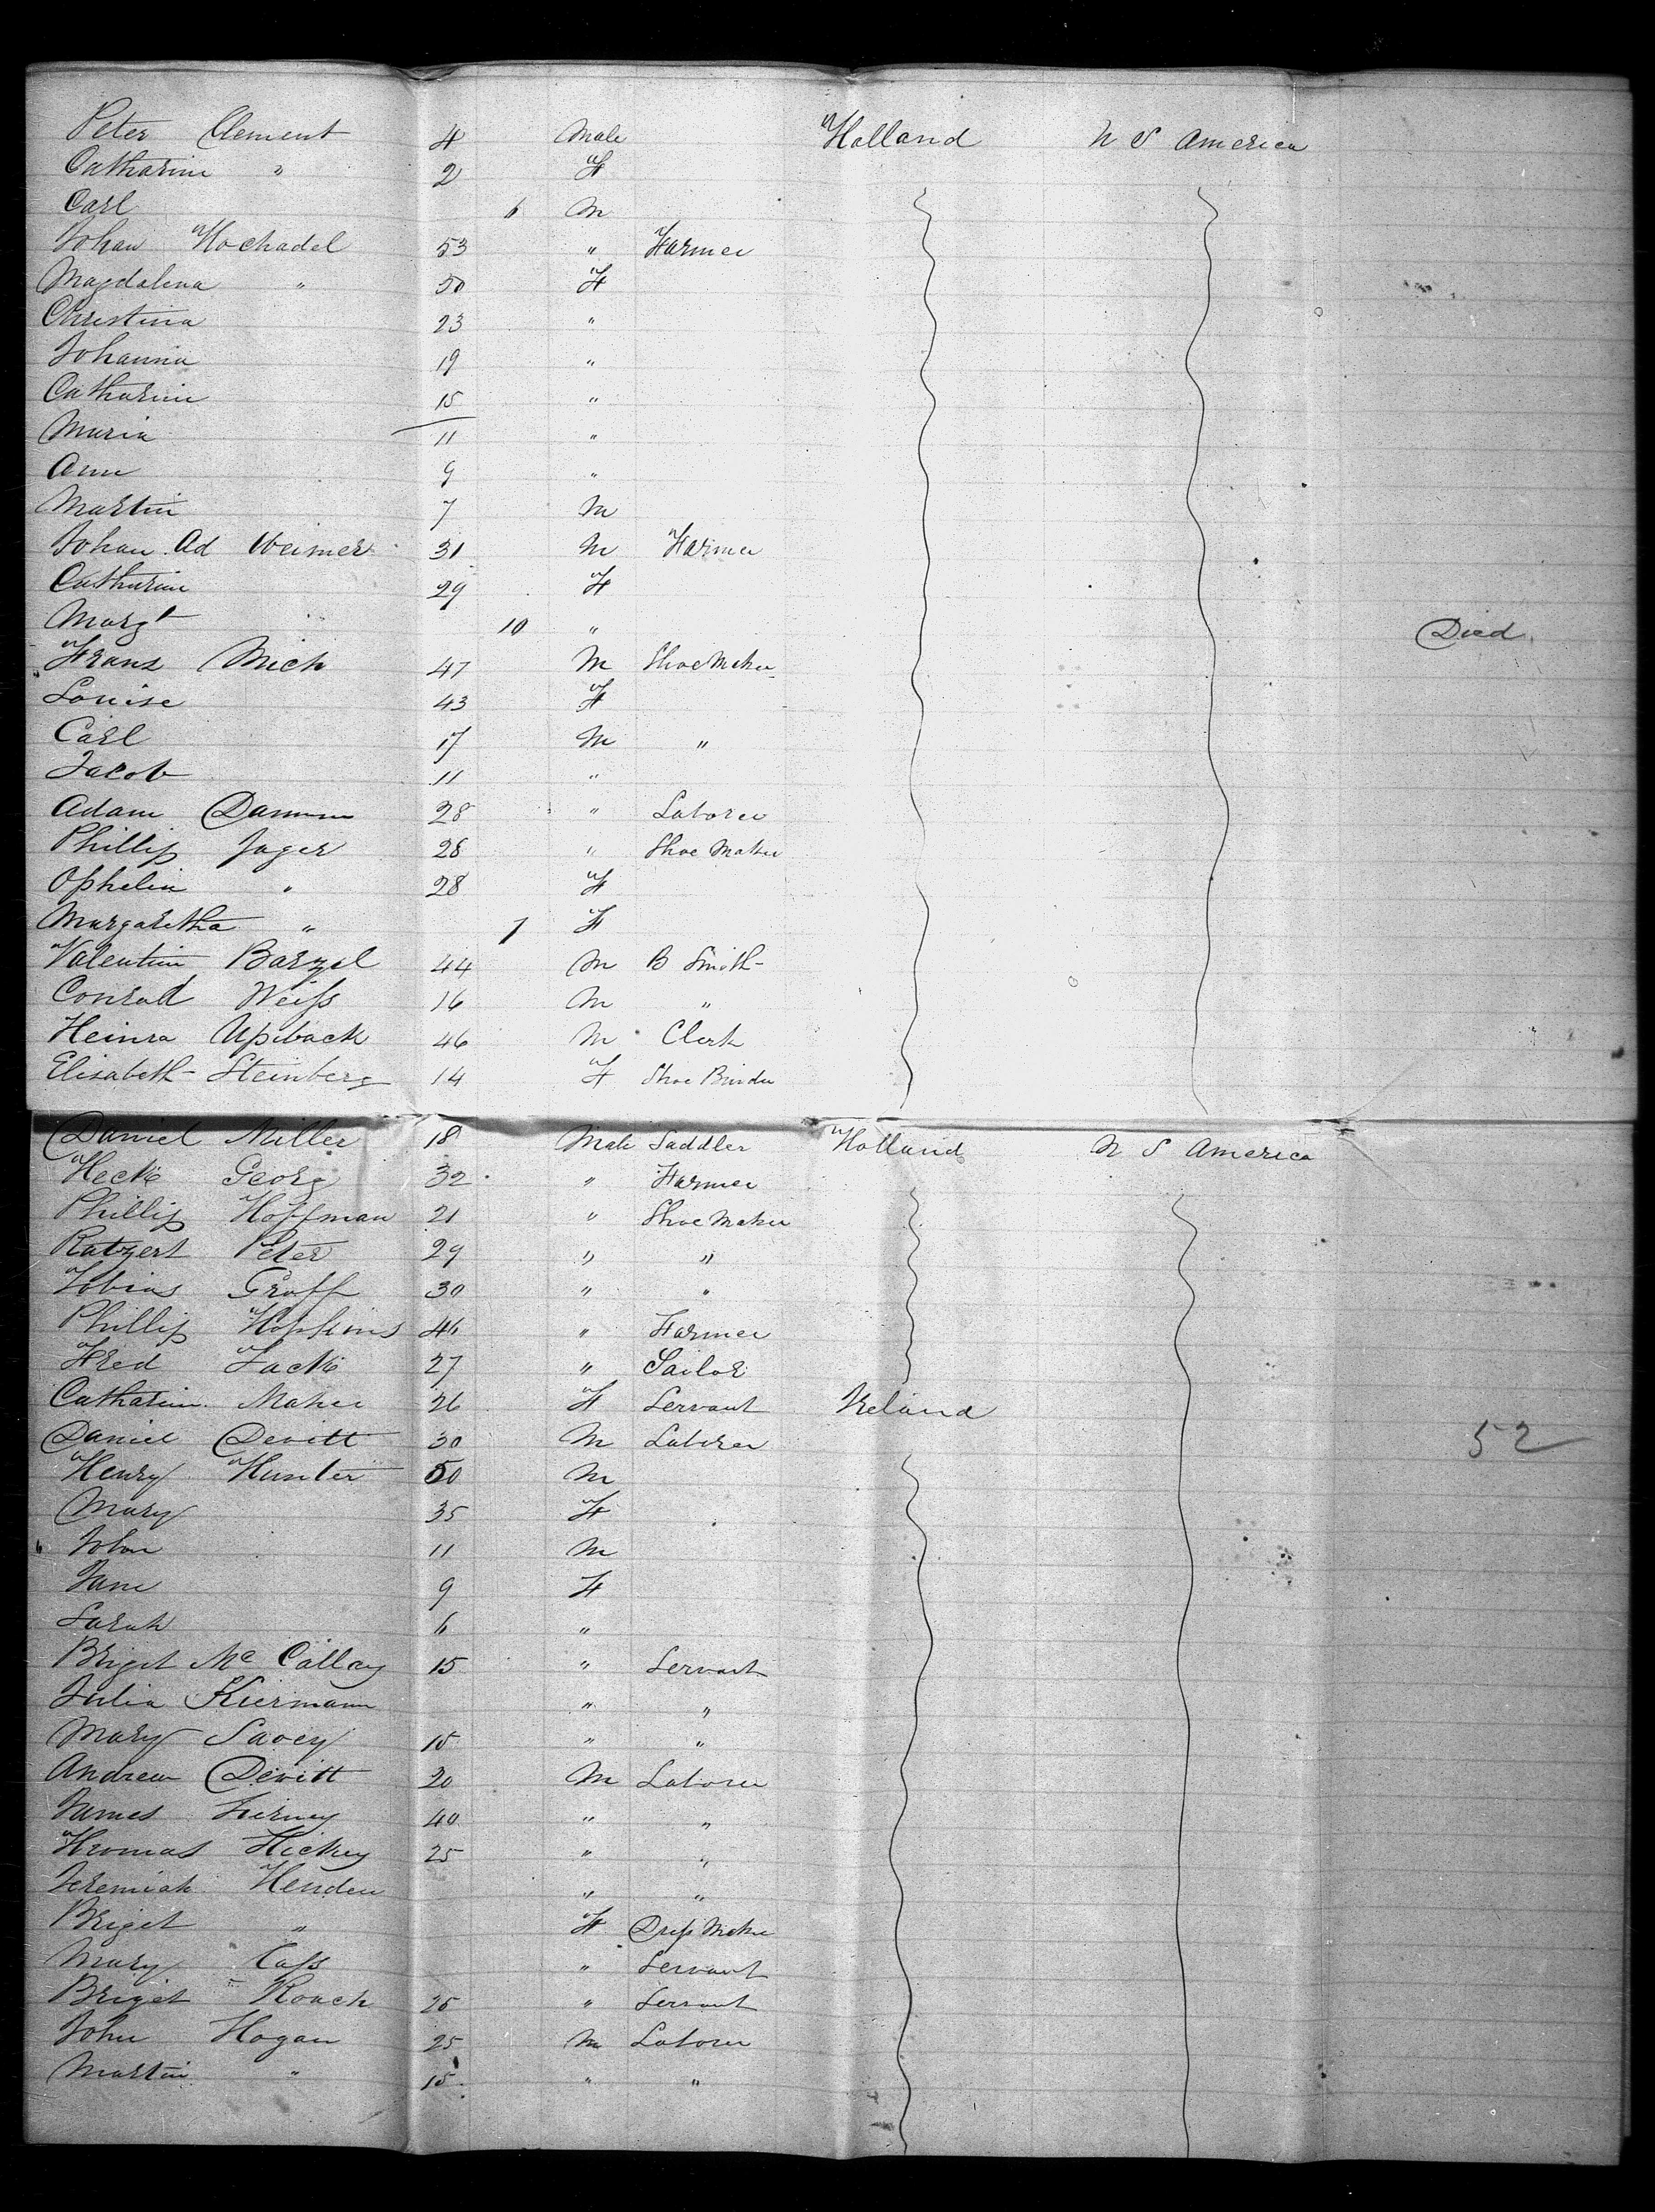 Peter Clement 4 Male Holland U S America
Catharine " 2 F
Carl 6 M
Johan Hochadel 53 " Farmer
Magdalena " 50 F
Christina 23 "
Johanna 19 "
Catharine 15 "
Maria 11 "
Ann 9 "
Martin 7 M
Johan Ad Weimer 31 M Farmer
Catharine 29 F
Margt 10 " Died
Franz Mich 47 M Shoe Maker
Louise 43 F
Carl 17 M "
Jacob 11 "
Adam Damm 28 " Laborer
Phillip Jager 28 " Shoe Maker
Ophelia " 28 F
Margaretha " 1 F
Valentin Barzel 44 M B Smith
Conrad Weiss 16 M "
Heinra Upiback 46 M Clerk
Elisabeth Steinberg 14 F Shoe Binder
Daniel Miller 18 Male Saddler Holland U S America
Heck Georg 32 " Farmer
Phillip Hoffman 21 " Shoe Maker
Ratzert Peter 29 " "
Tobias Graff 30 " "
Phillip Hopkins 46 " Farmer
Fred Jack 27 " Sailor
Catharine Maher 26 F Servant Ireland
Daniel Devitt 30 M Laborer 52
Henry Hunter 50 M
Mary 35 F
John 11 M
Jane 9 F
Sarah 6 "
Briget Mc Callay 15 " Servant
Julia Kiermann " "
Mary Savey 15 " "
Andrew Devitt 20 M Laborer
James Tierney 40 " "
Thomas Hickey 25 " "
Jeremiah Henden " "
Briget " F Dress Maker
Mary Cass " Servant
Briget Roach 25 " Servant
John Hogan 25 M Laborer
Martin " 15 " "